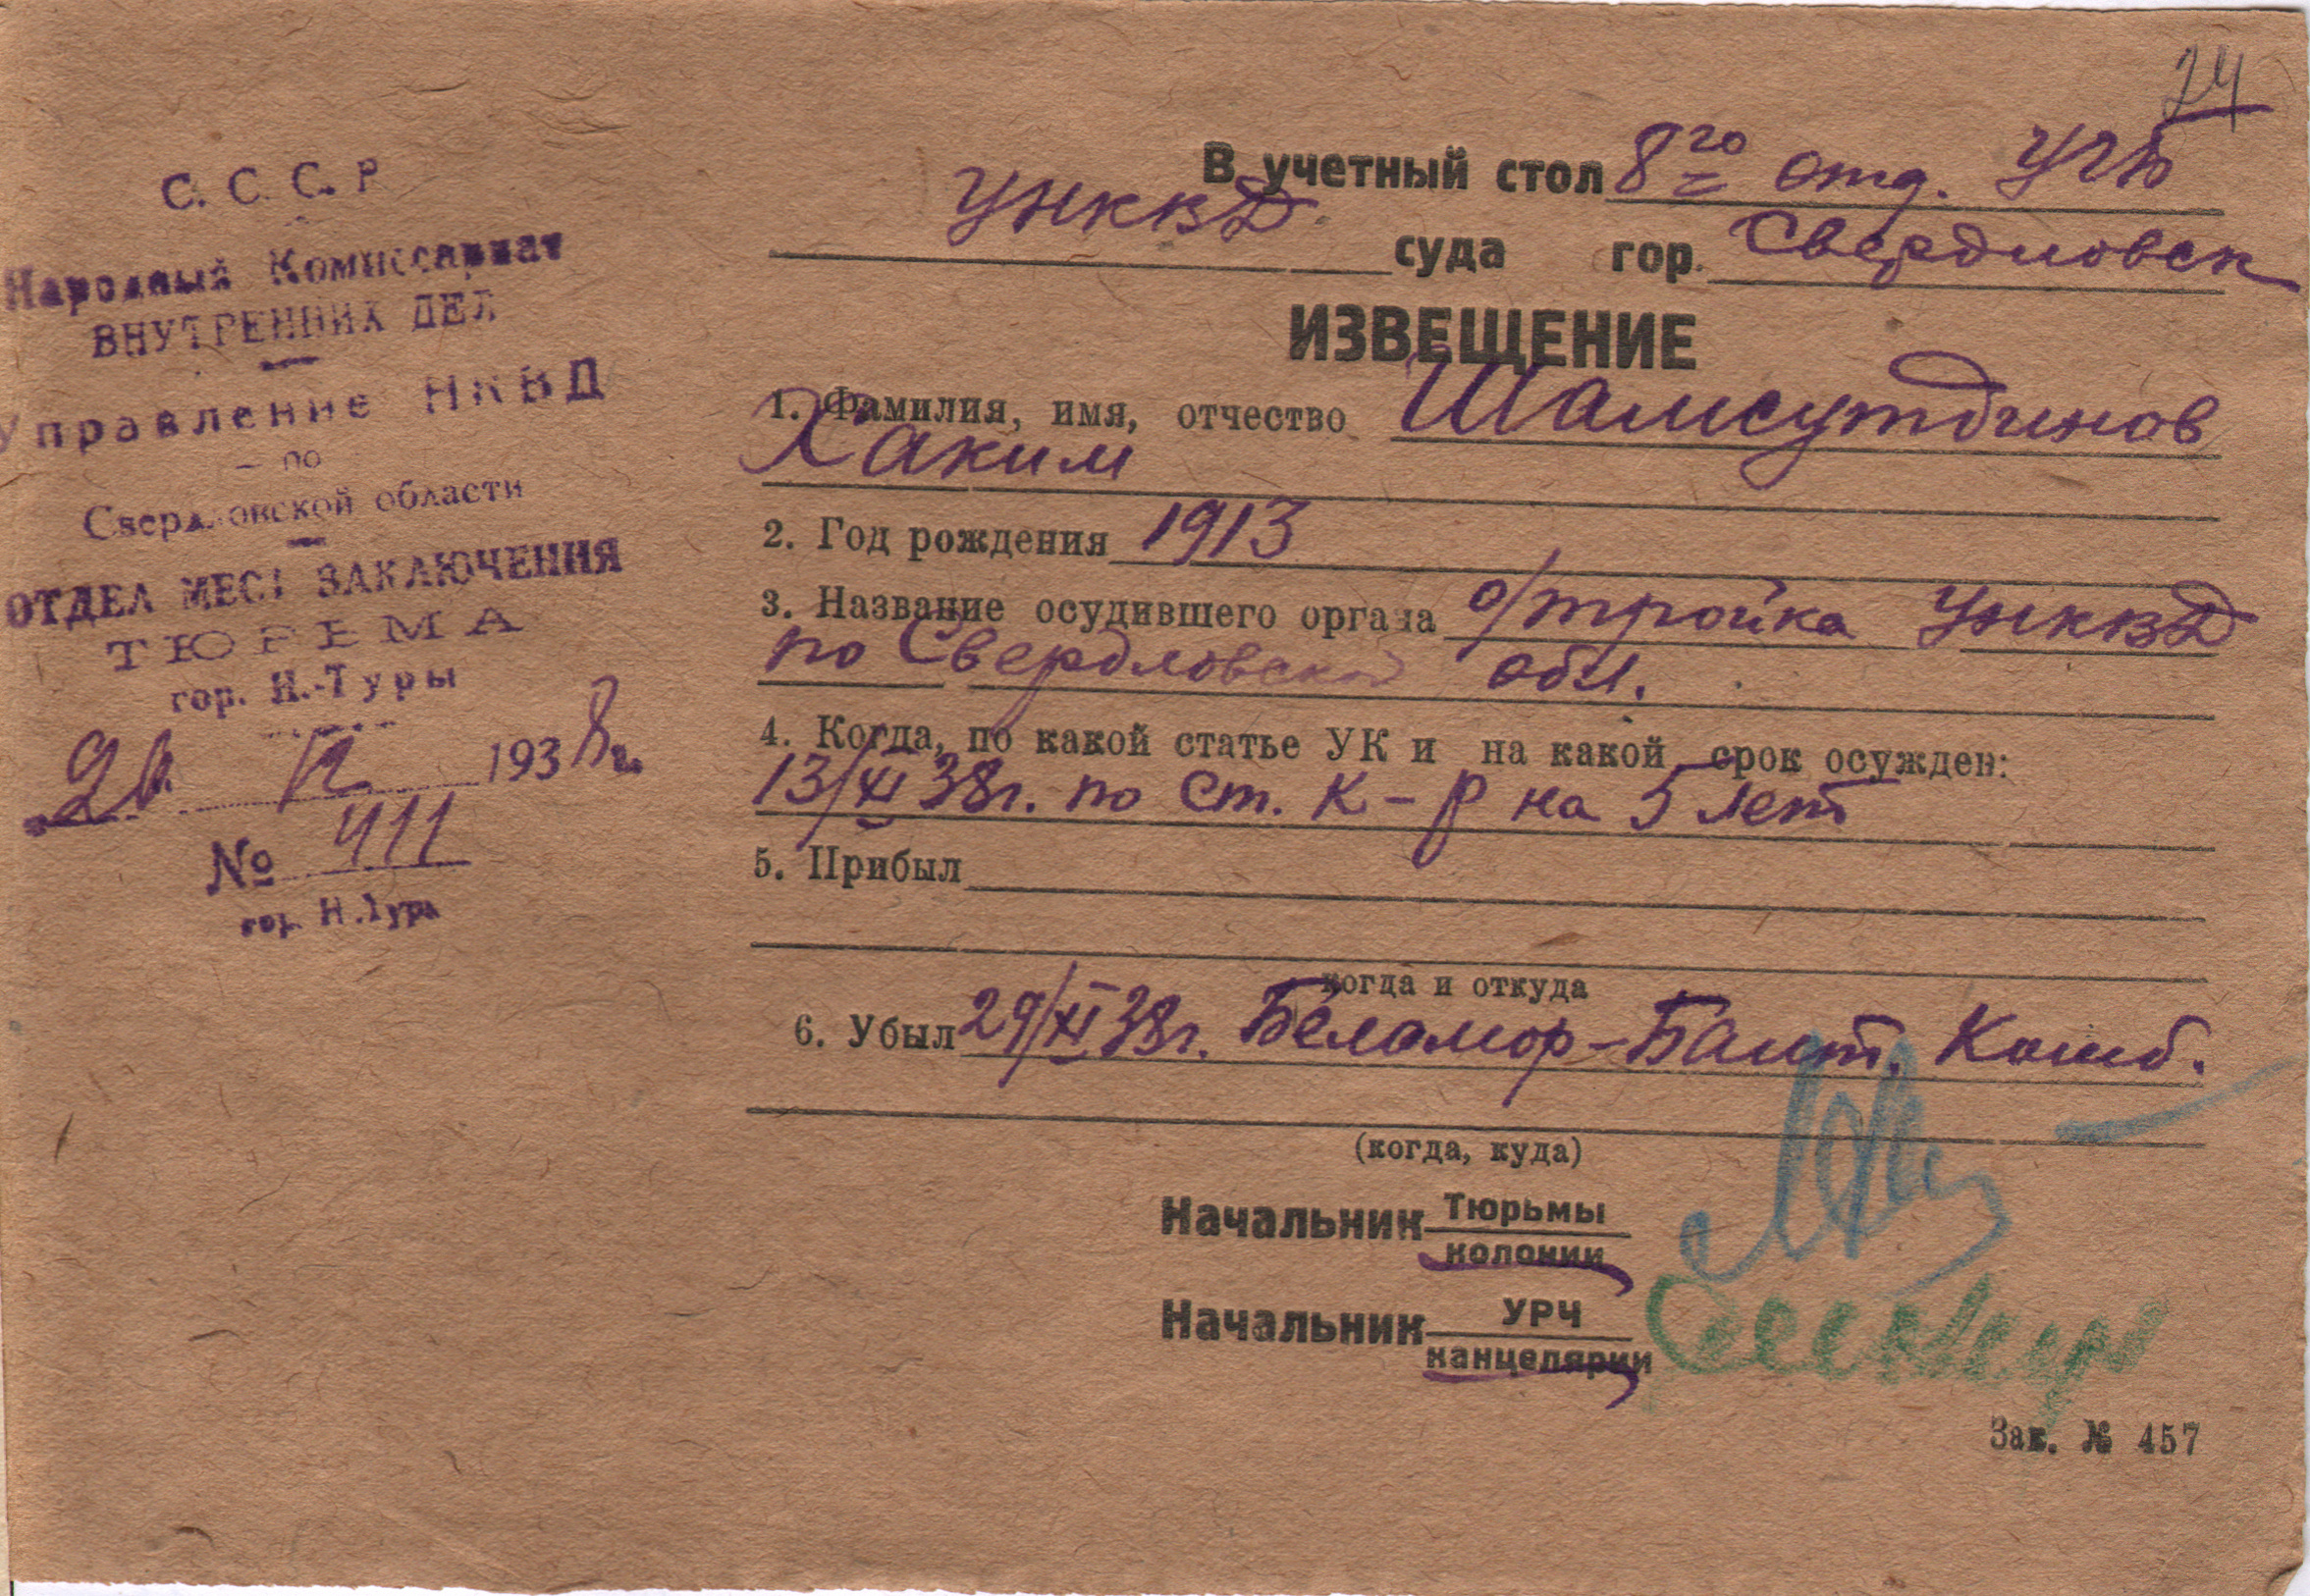 24
С. С. С. Р
Народный Комиссариат
ВНУТРЕННИХ ДЕЛ
Управление НКВД
по
Свердловской области
ОТДЕЛ МЕСТ ЗАКЛЮЧЕНИЯ
ТЮРЕМА
гор. Н.-Туры
12 1938 г.
№ 411
гор. Н.Тура
В учетный стол 8го отд. УГБ
УНКВД суда гор. Свердловск
ИЗВЕЩЕНИЕ
1. Фамилия, имя, отчество Шамсутдинов
Хаким
2. Год рождения 1913
3. Название осудившего органа о/тройка УНКВД
по Свердловской обл.
4. Когда, по какой статье УК и на какой срок осужден:
13/XI 38г. по ст. К-р на 5 лет
5. Прибыл
когда и откуда
6. Убыл 29/XI 38г. Беломор-Балт. Комб.
(когда, куда)
Начальник Тюрьмы
колонии
Начальник УРЧ
канцелярии
Зак. № 457